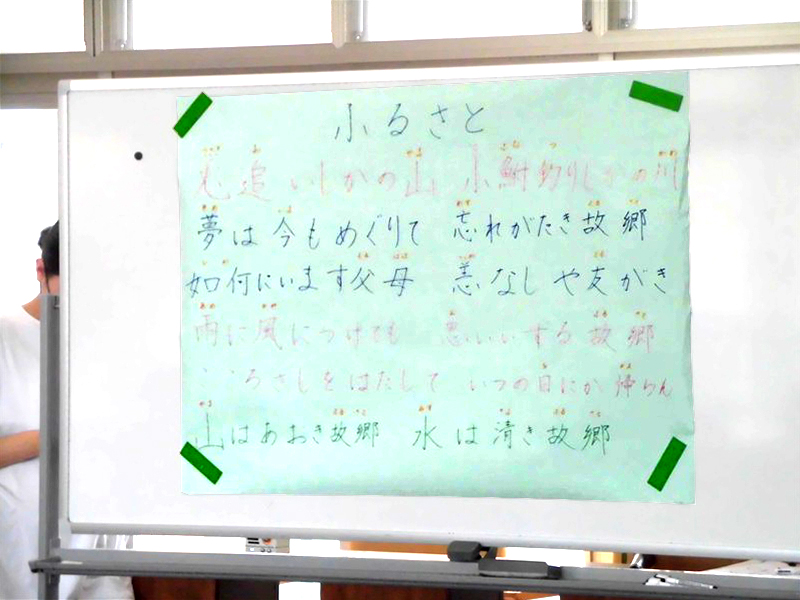 ふるさと
兎追いしかの山 小鮒釣りしかの川
夢は今もめぐりて 忘れがたき故郷
如何にいます父母 恙なしや友がき
雨に風につけても 思いいずる故郷
こころざしをはたして いつの日にか帰らん
山はあおき故郷 水は清き故郷